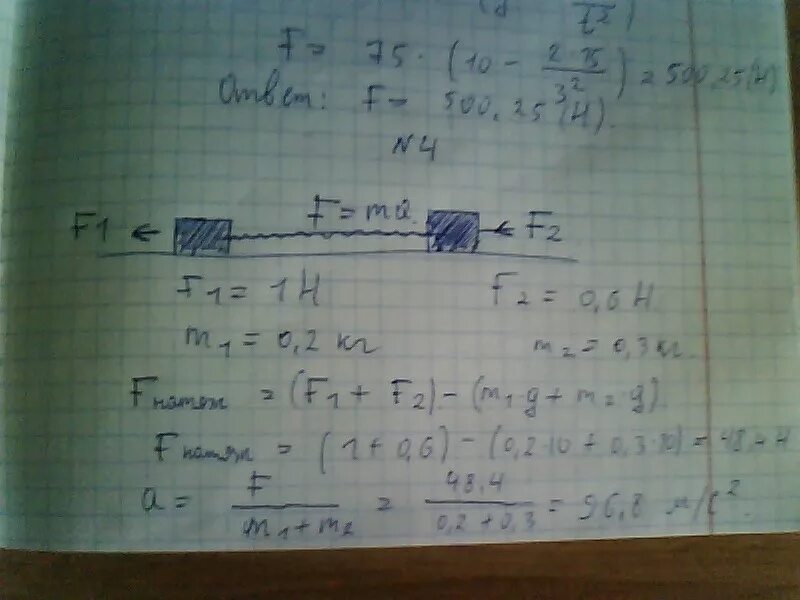 t²)
F = 75 · (10 - 2·15/3²) = 500,25(Н)
Ответ: F = 500,25(Н).
N4
F1 ← F=ma ← F2
F1 = 1Н F2 = 0,6Н
m1 = 0,2 кг m2 = 0,3 кг.
Fнатяж = (F1 + F2) - (m1·g + m2·g).
Fнатяж = (1+0,6) - (0,2·10 + 0,3·10) = 48,4 Н
a = F/m1+m2 = 48,4/0,2+0,3 = 96,8 м/с².